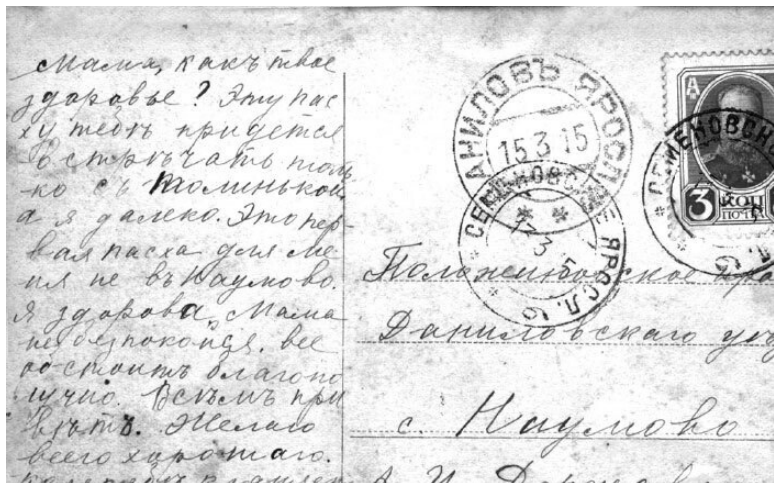 Мама, какъ твое
здоровье? Эту пас
ху тебѣ придется
встрѣчать толь
ко съ Толинькой
а я далеко. Это пер
вая пасха для ме
ня не въ Наумово.
Я здорова. Мама
не безпокойся. все
обстоитъ благопо
лучно. Всѣмъ при
вѣтъ. Желаю
всего хорошаго.
АНИЛОВЪ ЯРОСЛ
15 3 15
СЕМЕНОВСКОЕ ЯРОСЛ. Г.
СЕМЕНОВСКО
3 КОП
ПОЧТ
Даниловскаго уѣз
с. Наумово